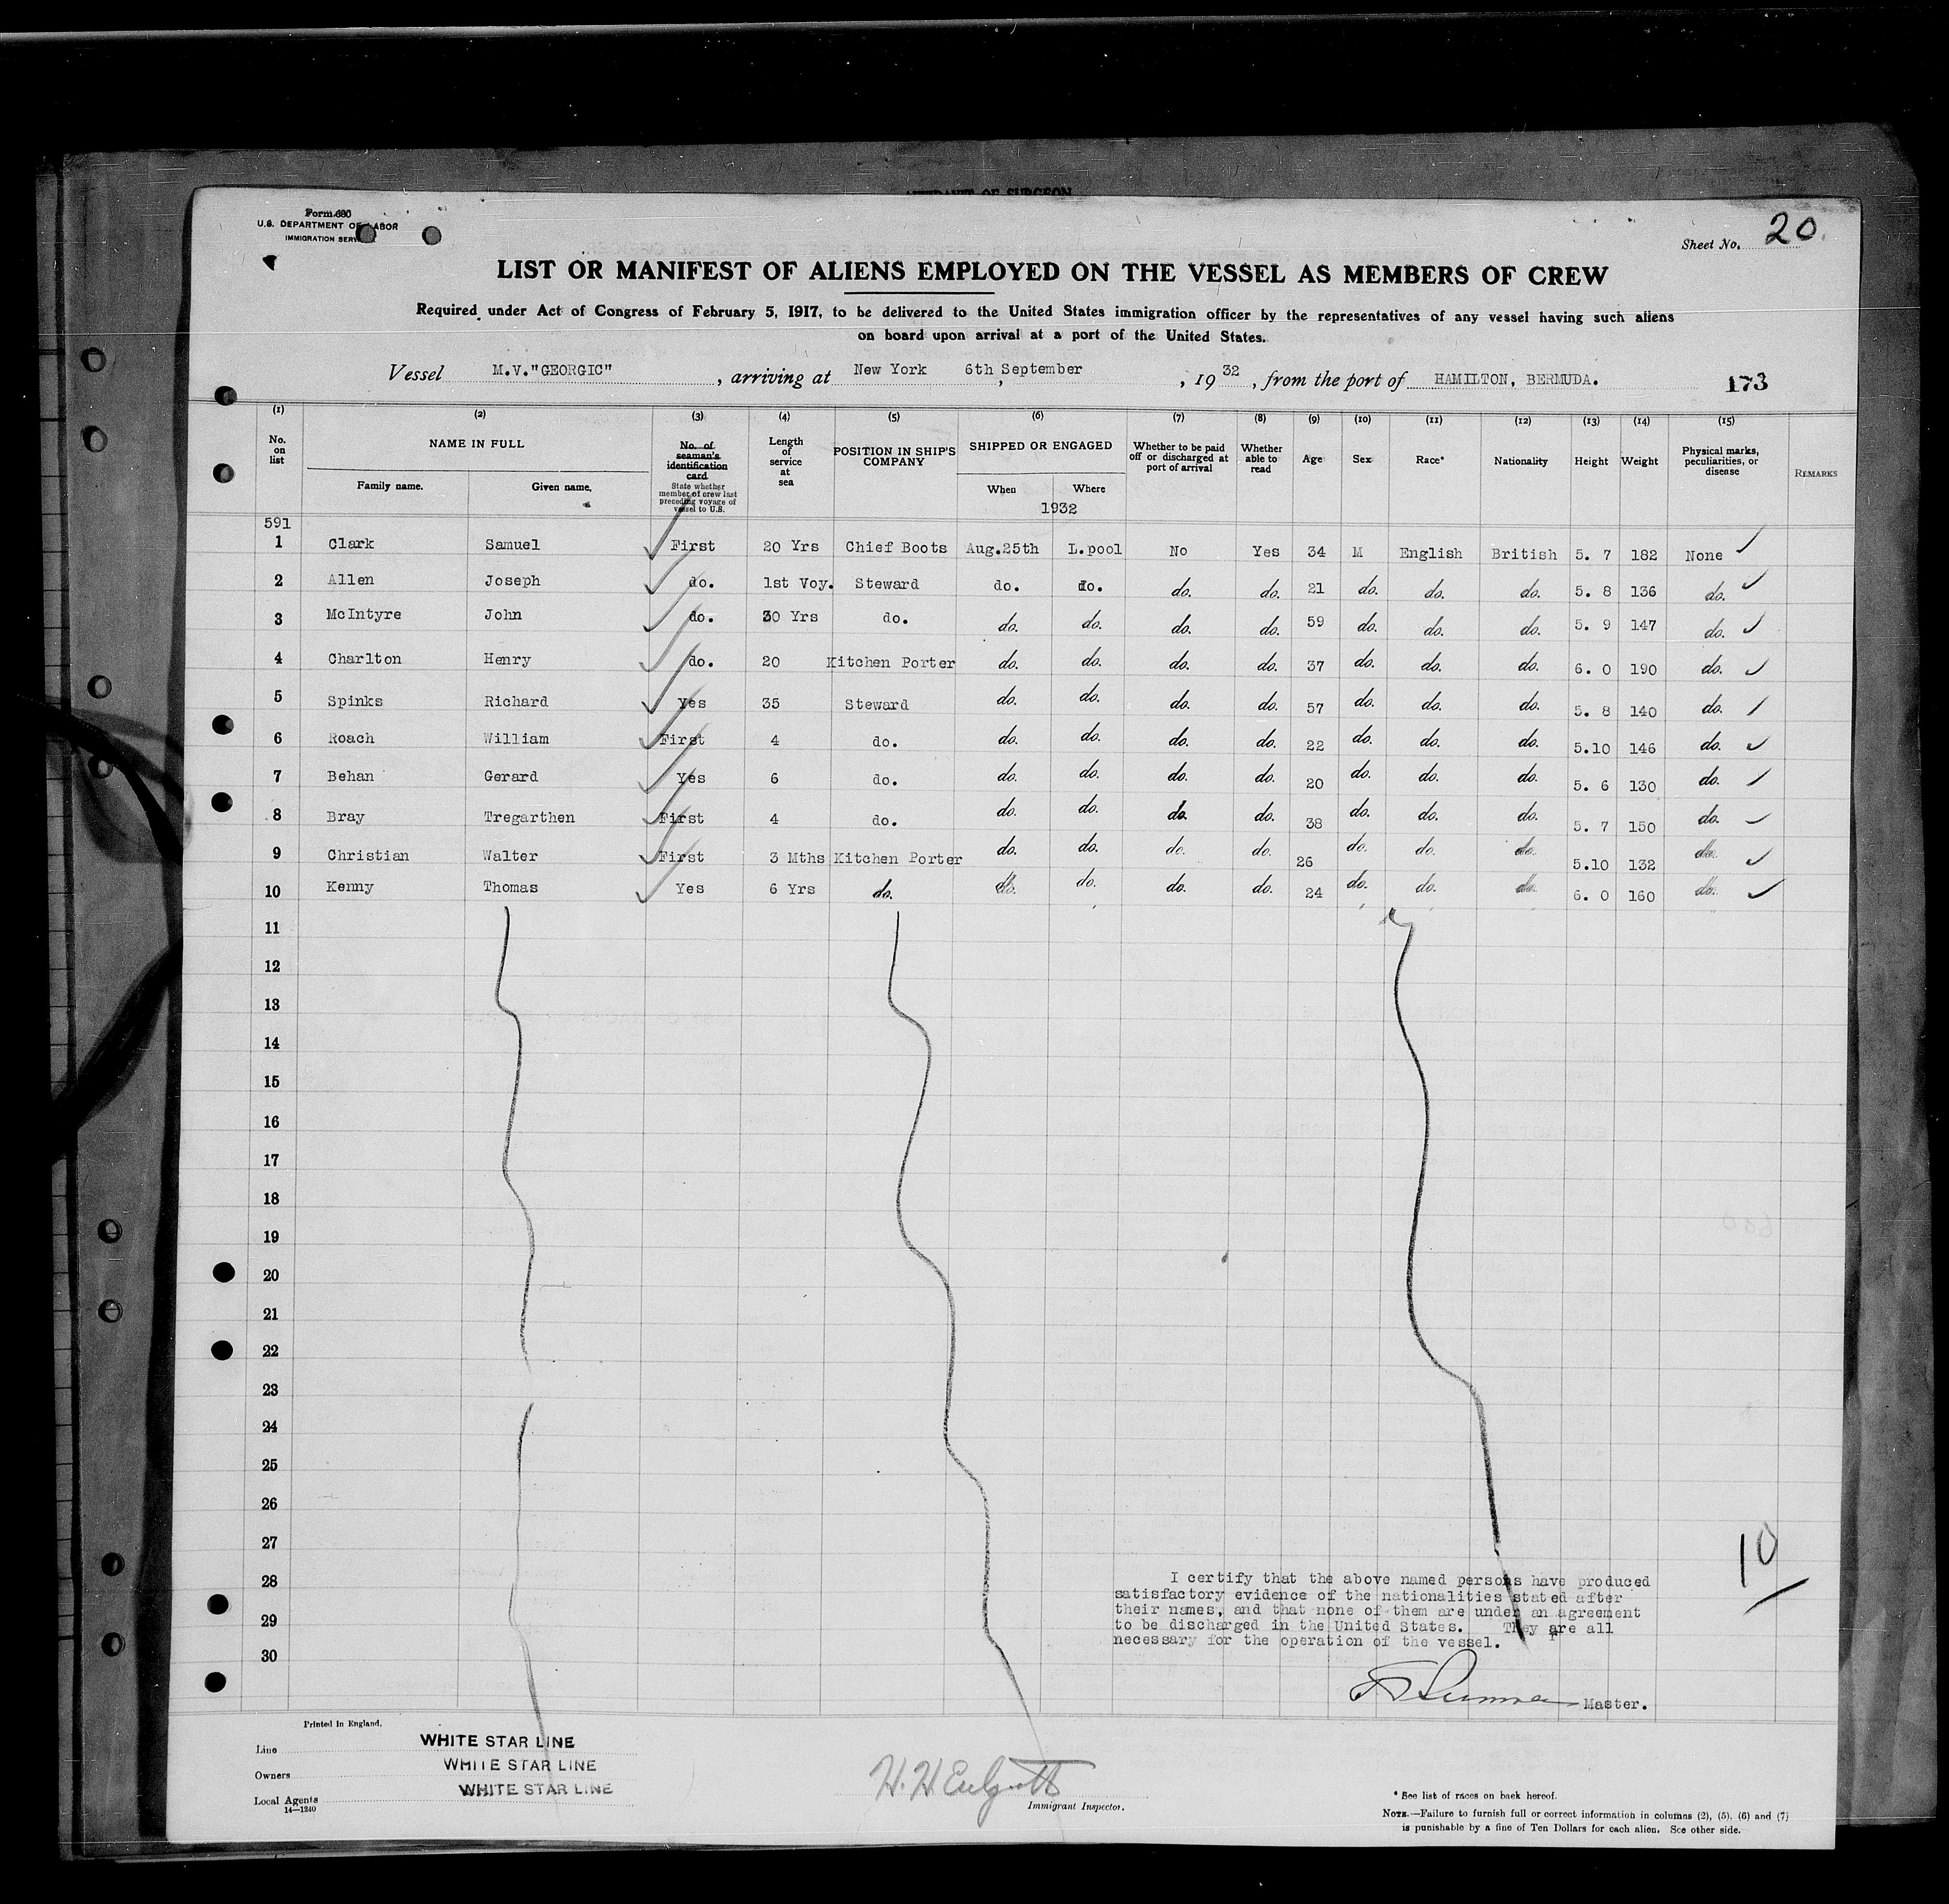 Form 680
U.S. DEPARTMENT OF LABOR
IMMIGRATION SERVICE
Sheet No. 20
LIST OR MANIFEST OF ALIENS EMPLOYED ON THE VESSEL AS MEMBERS OF CREW
Required under Act of Congress of February 5, 1917, to be delivered to the United States immigration officer by the representatives of any vessel having such aliens
on board upon arrival at a port of the United States.
Vessel M.V."GEORGIC", arriving at New York 6th September, 1932, from the port of HAMILTON, BERMUDA. 173
(1) (2) (3) (4) (5) (6) (7) (8) (9) (10) (11) (12) (13) (14) (15)
No. on list NAME IN FULL Family name. Given name. No. of seaman's identification card State whether member of crew last preceding voyage of vessel to U.S. Length of service at sea POSITION IN SHIP'S COMPANY SHIPPED OR ENGAGED When Where Whether to be paid off or discharged at port of arrival Whether able to read Age Sex Race* Nationality Height Weight Physical marks, peculiarities, or disease REMARKS
1932
591
1 Clark Samuel First 20 Yrs Chief Boots Aug.25th L.pool No Yes 34 M English British 5. 7 182 None
2 Allen Joseph do. 1st Voy. Steward do. do. do. do. 21 do. do. do. 5. 8 136 do.
3 McIntyre John do. 30 Yrs do. do. do. do. do. 59 do. do. do. 5. 9 147 do.
4 Charlton Henry do. 20 Kitchen Porter do. do. do. do. 37 do. do. do. 6. 0 190 do.
5 Spinks Richard Yes 35 Steward do. do. do. do. 57 do. do. do. 5. 8 140 do.
6 Roach William First 4 do. do. do. do. do. 22 do. do. do. 5.10 146 do.
7 Behan Gerard Yes 6 do. do. do. do. do. 20 do. do. do. 5. 6 130 do.
8 Bray Tregarthen First 4 do. do. do. do. do. 38 do. do. do. 5. 7 150 do.
9 Christian Walter First 3 Mths Kitchen Porter do. do. do. do. 26 do. do. do. 5.10 132 do.
10 Kenny Thomas Yes 6 Yrs do. do. do. do. do. 24 do. do. do. 6. 0 160 do.
11
12
13
14
15
16
17
18
19
20
21
22
23
24
25
26
27
28
29
30
10
I certify that the above named persons have produced
satisfactory evidence of the nationalities stated after
their names, and that none of them are under an agreement
to be discharged in the United States. They are all
necessary for the operation of the vessel.
Master.
Printed in England.
Line WHITE STAR LINE
Owners WHITE STAR LINE
Local Agents WHITE STAR LINE
14—1240
Immigrant Inspector.
* See list of races on back hereof.
NOTE.—Failure to furnish full or correct information in columns (2), (5), (6) and (7)
is punishable by a fine of Ten Dollars for each alien. See other side.